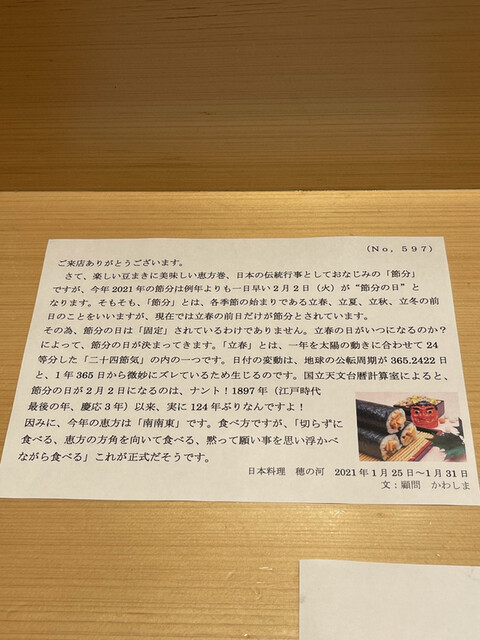 (No, 597)
ご来店ありがとうございます。
さて、楽しい豆まきに美味しい恵方巻、日本の伝統行事としておなじみの「節分」
ですが、今年2021年の節分は例年よりも一日早い2月2日(火)が“節分の日”と
なります。そもそも、「節分」とは、各季節の始まりである立春、立夏、立秋、立冬の前
日のことをいいますが、現在では立春の前日だけが節分とされています。
その為、節分の日は「固定」されているわけでありません。立春の日がいつになるのか?
によって、節分の日が決まってきます。「立春」とは、一年を太陽の動きに合わせて24
等分した「二十四節気」の内の一つです。日付の変動は、地球の公転周期が365.2422日
と、1年365日から微妙にズレているため生じるのです。国立天文台暦計算室によると、
節分の日が2月2日になるのは、ナント!1897年(江戸時代
最後の年、慶応3年)以来、実に124年ぶりなんですよ!
因みに、今年の恵方は「南南東」です。食べ方ですが、「切らずに
食べる、恵方の方角を向いて食べる、黙って願い事を思い浮かべ
ながら食べる」これが正式だそうです。
日本料理 穂の河 2021年1月25日~1月31日
文:顧問 かわしま